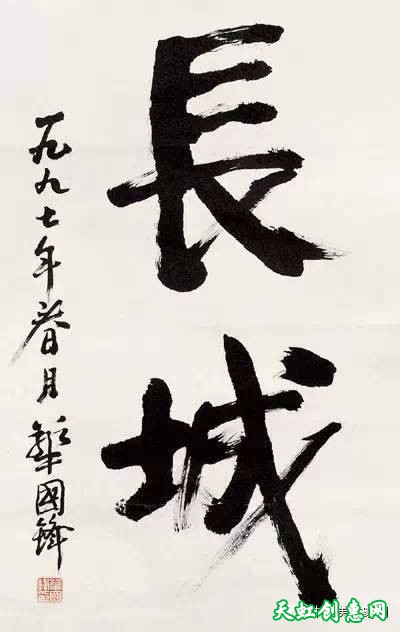 長城
一九九七年春月
華國鋒
天虹创意网